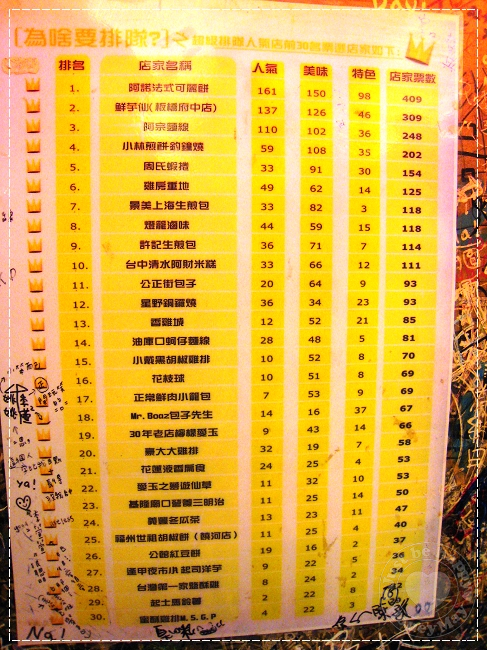 [為啥要排隊?]
超級排隊人氣店前30名票選店家如下:
排名 店家名稱 人氣 美味 特色 店家票數
1. 阿諾法式可麗餅 161 150 98 409
2. 鮮芋仙(板橋府中店) 137 126 46 309
3. 阿宗麵線 110 102 36 248
4. 小林煎餅鈞鐘燒 59 108 35 202
5. 周氏蝦捲 33 91 30 154
6. 雞房重地 49 62 14 125
7. 景美上海生煎包 33 82 3 118
8. 燈籠滷味 44 59 15 118
9. 許記生煎包 36 71 7 114
10. 台中清水阿財米糕 33 66 12 111
11. 公正街包子 20 64 9 93
12. 星野銅鑼燒 36 34 23 93
13. 香雞城 12 52 21 85
14. 油庫口蚵仔麵線 28 48 5 81
15. 小戴黑胡椒雞排 10 52 8 70
16. 花枝球 10 51 8 69
17. 正常鮮肉小籠包 7 53 9 69
18. Mr.Boaz包子先生 14 16 37 67
19. 30年老店檸檬愛玉 9 43 14 66
20. 豪大大雞排 32 19 7 58
21. 花蓮液香扁食 24 25 4 53
22. 愛玉之夢遊仙草 11 32 10 53
23. 基隆廟口營養三明治 11 25 14 50
24. 義豐冬瓜茶 13 23 11 47
25. 福州世祖胡椒餅(饒河店) 11 25 4 40
公館紅豆餅 19 16 2 37
27. 逢甲夜市小起司洋芋 9 22 5 36
28. 台灣第一家鹽酥雞 8 24 2 34
29. 起士馬鈴薯 2 22 8 32
30. 2 4 22 3
Ya!
No!